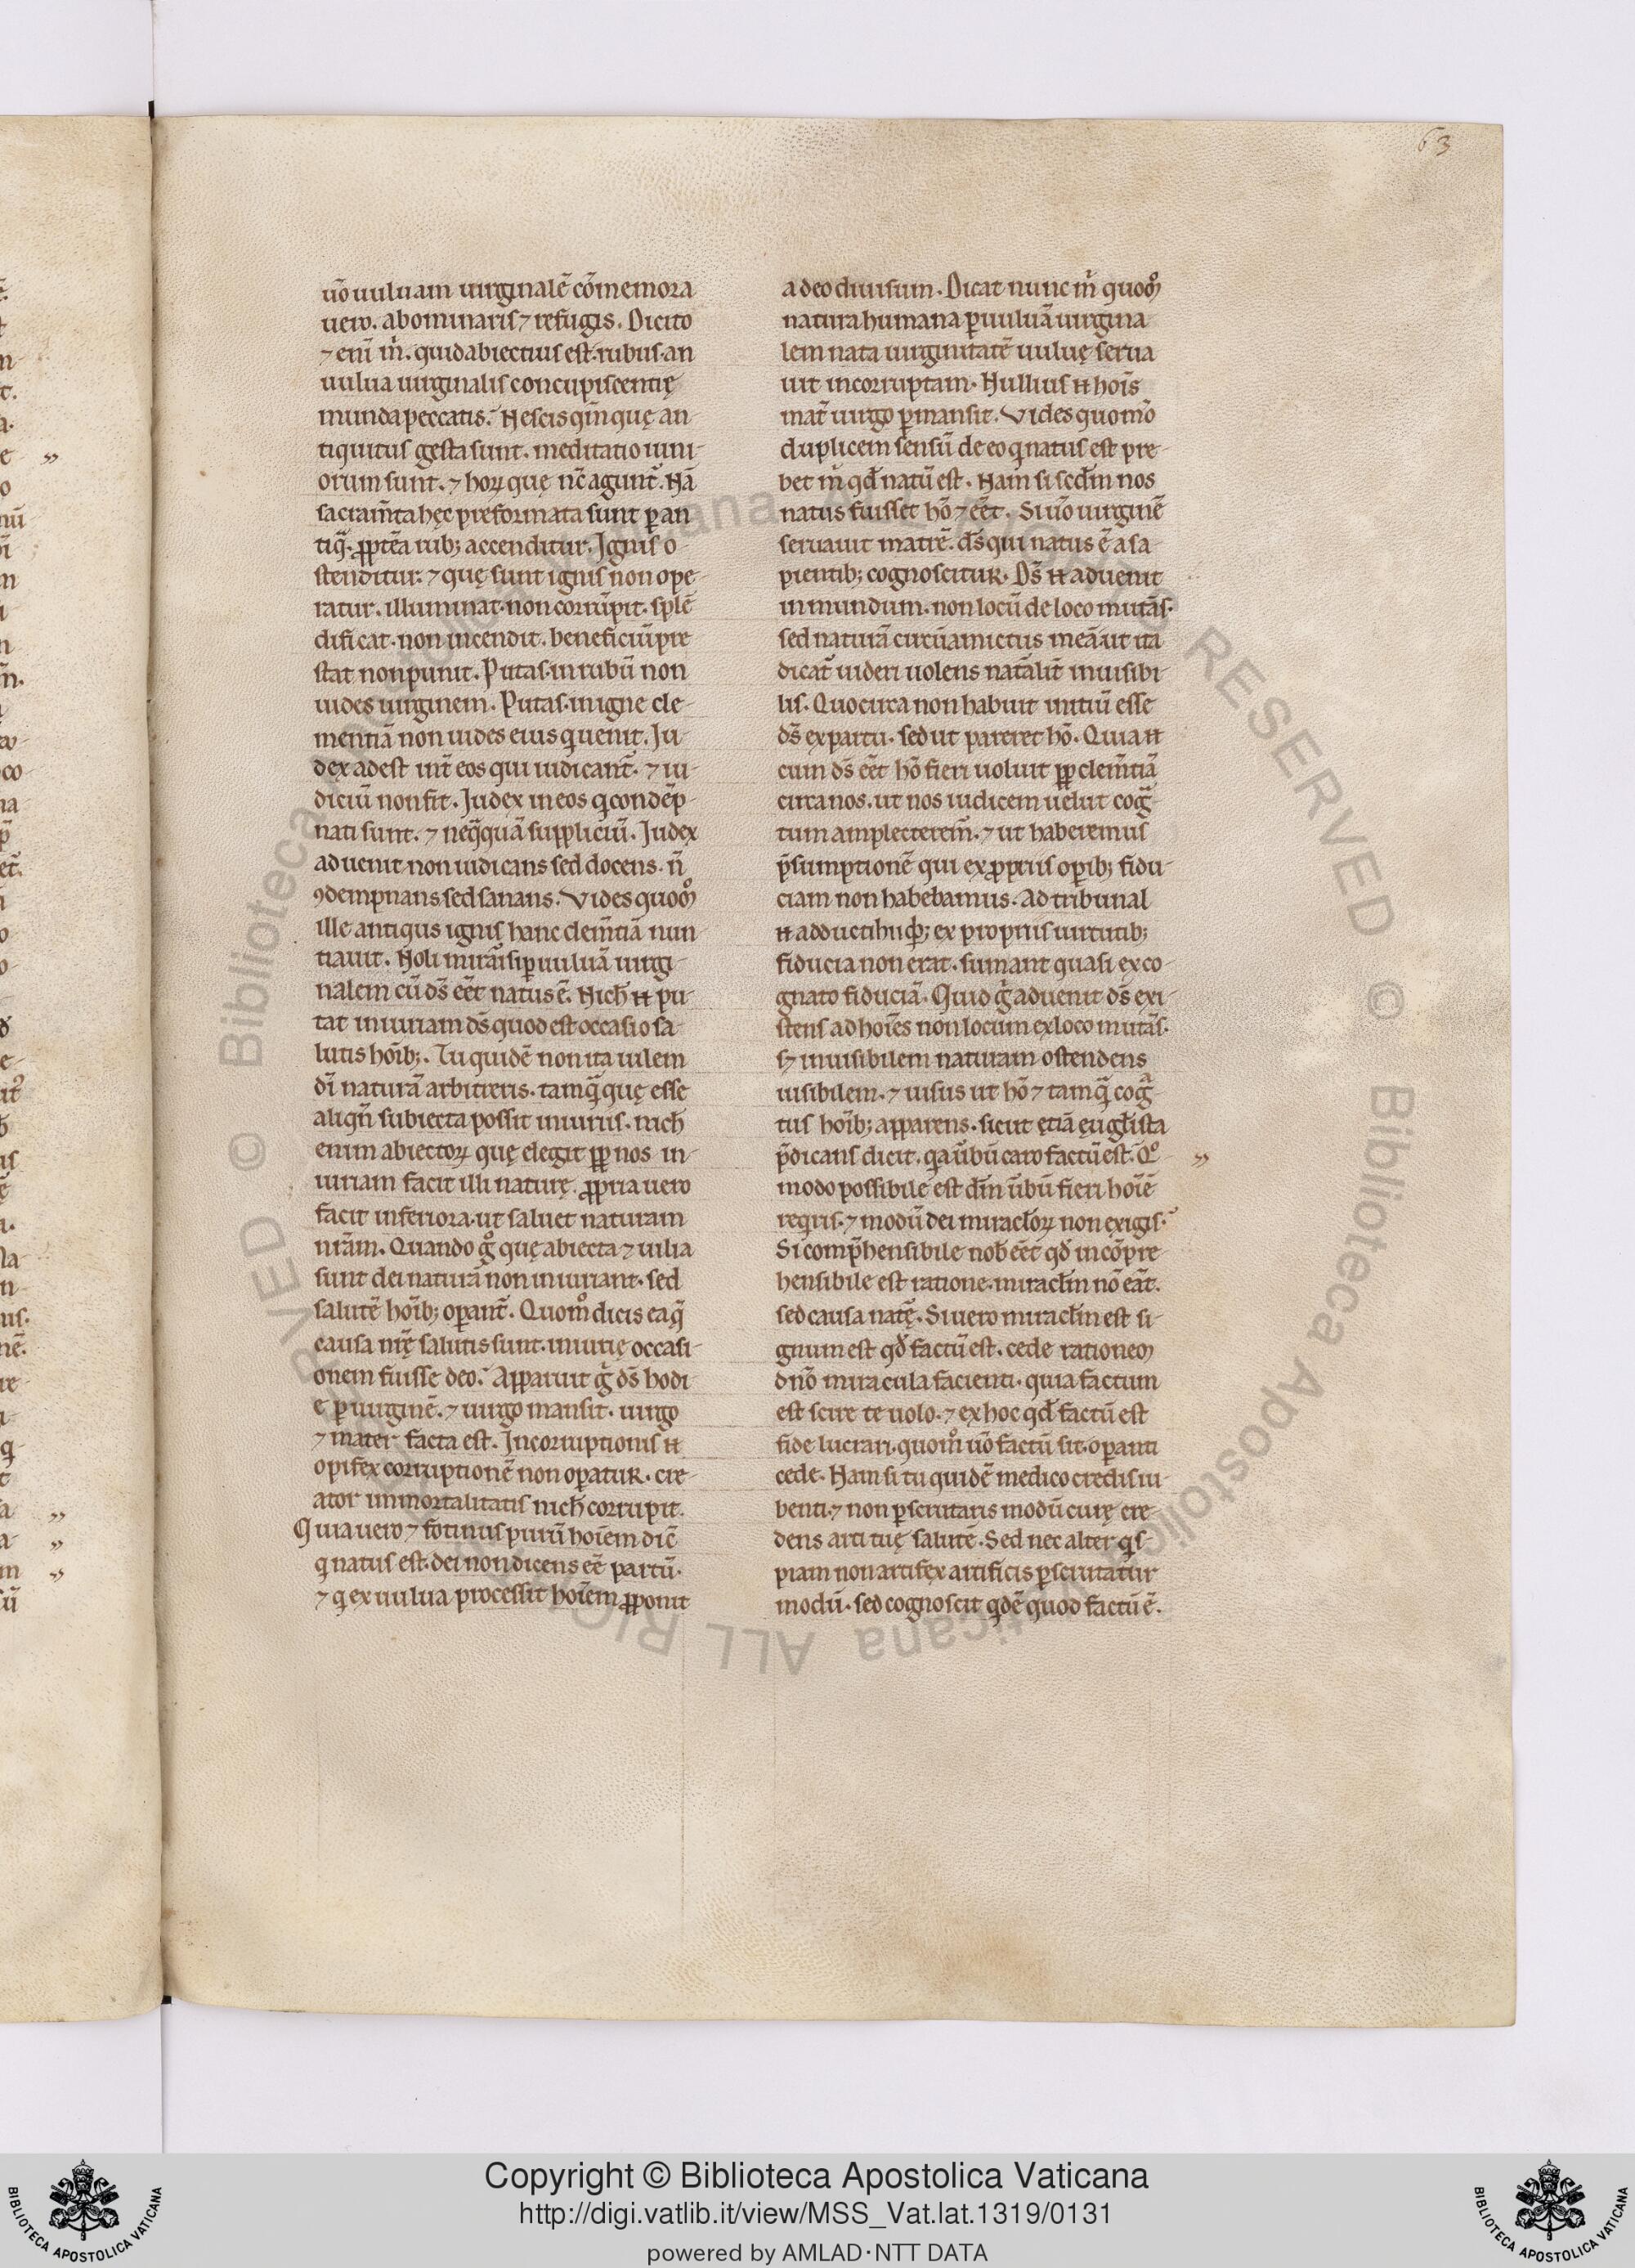 63
uō uuluam uirginalē cōmemora
uero. abominaris ⁊ refugis. Dicito
⁊ eni m̄. quid abiectius est. rubus. an
uulua uirginalis concupiscentię
munda peccatis. Nescis qm̄ quę an
tiquitus gesta sunt. meditatio iuni-
orum sunt. ⁊ hoꝝ quę nc̄ agunt̄. Nā
sacram̄ta hęc preformata sunt ꝑ an
tiq̄. ꝓptēa rubꝫ accenditur. Ignis o-
stenditur: ⁊ quę sunt ignis non ope-
ratur. illuminat. non corrūpit. splē
dificat. non incendit. beneficiū pre
stat non punit. Putas. in rubū non
uides uirginem. Putas. in igne cle-
mentiā non uides eius q uenit. Iu-
dex adest int̄ eos qui iudicant̄. ⁊ iu-
diciū non fit. Iudex in eos q condēp-
nati sunt. ⁊ neq̄quā suppliciū. Iudex
aduenit non iudicans sed docens. n̄
ꝯdempnans sed sanans. Vides quoō
ille antiqus ignis hanc clem̄tiā nun-
tiauit. Noli mirari si ꝑ uuluā uirgi-
nalem cū ds̄ eēt natus ē. Nich̄ ħ pu-
tat iniuriam ds̄ quod est occasio sa-
lutis hoīb;. Tu quidē non ita uilem
dī naturā arbitreris. tamq̄ quę esse
aliqn̄ subiecta possit iniuriis. nich̄
enim abiectoꝝ quę elegit ꝓp nos in-
iuriam facit illi naturę. ꝓpria uero
facit inferiora. ut saluet naturam
nrām. Quando ḡ quę abiecta ⁊ uilia
sunt dei naturā non iniuriant. sed
salutē hoīb; oꝑant̄. Quom̊ dicis ea q̄
causa nrę̄ salutis sunt. iniurię occasi-
onem fuisse deo. Apparuit ḡ ds̄ hodi-
e ꝑ uirginē. ⁊ uirgo mansit. uirgo
⁊ mater facta est. Incorruptionis ħ
opifex corruptionē non oꝑatur. cre-
ator immortalitatis nich̄ corrupit.
Quia uero ⁊ fotinus purū hoīem dic̄
q natus est. dei non dicens eē partū.
⁊ q ex uulua processit hoīem ꝓponit
a deo diuisum. Dicat nunc m̄ quoō
natura humana ꝑ uuluā uirgina
lem nata uirginitatē uuluę serua
uit incorruptam. Nullius ħ hoīs
mat̄ uirgo ꝑmansit. Vides quomō
duplicem sensū de eo q natus est pre-
bet m̄ qd̄ natū est. Nam si scdm̄ nos
natus fuisset hō ⁊ eēt. Si uō uirginē
seruauit matrē. ds̄ qui natus ē a sa-
pientib; cognoscitur. Ds̄ ħ aduenit
in mundum. non locū de loco mutās.
sed naturā circūamictus meā. ut ita
dicat̄ uideri uolens nat̄alit̄ inuisibi-
lis. Quocirca non habuit initiū esse
ds̄ ex partu. sed ut pareret hō. Quia ħ
cum ds̄ eēt hō fieri uoluit ꝓp clem̄tiā
circa nos. ut nos iudicem uelut coḡ-
tum amplecterem̄. ⁊ ut haberemus
p̄sumptionē qui ex ꝓpriis oꝑib; fidu-
ciam non habebamus. Ad tribunal
ħ adducti huic; ex propriis uirtutib;
fiducia non erat. sumant quasi ex co-
gnato fiduciā. Quid ḡ aduenit ds̄ exi-
stens ad hoīes non locum ex loco mutās.
sꝫ inuisibilem naturam ostendens
uisibilem. ⁊ uisus ut hō ⁊ tamq̄ coḡ-
tus hoīb; apparens. sicut ętiā ęuglīsta
p̄dicans dicit. qa ūbū caro factū est. Qº
modo possibile est dm̄ ūbū fieri hoīē
reqris. ⁊ modū dei miracl̄oꝝ non exigis.
Si comp̄hensibile nob̄ eēt qd̄ incōpre-
hensibile est ratione. miraclm̄ nō eāt.
sed causa natę̄. Si uero miraclm̄ est si-
gnum est qd̄ factū est. cede rationem
dnō miracula facienti. quia factum
est scire te uolo. ⁊ ex hoc qd̄ factū est
fide lucrari. quom̊ uō factū sit. oꝑanti
cede. Nam si tu quidē medico credis iu-
benti. ⁊ non ꝑscrutaris modū curę cre-
dens arti tuę salutē. Sed nec alter qs-
piam non artifex artificis ꝑscrutatur
modū. sed cognoscit qdē quod factū ē.
Copyright © Biblioteca Apostolica Vaticana
http://digi.vatlib.it/view/MSS_Vat.lat.1319/0131
powered by AMLAD·NTT DATA